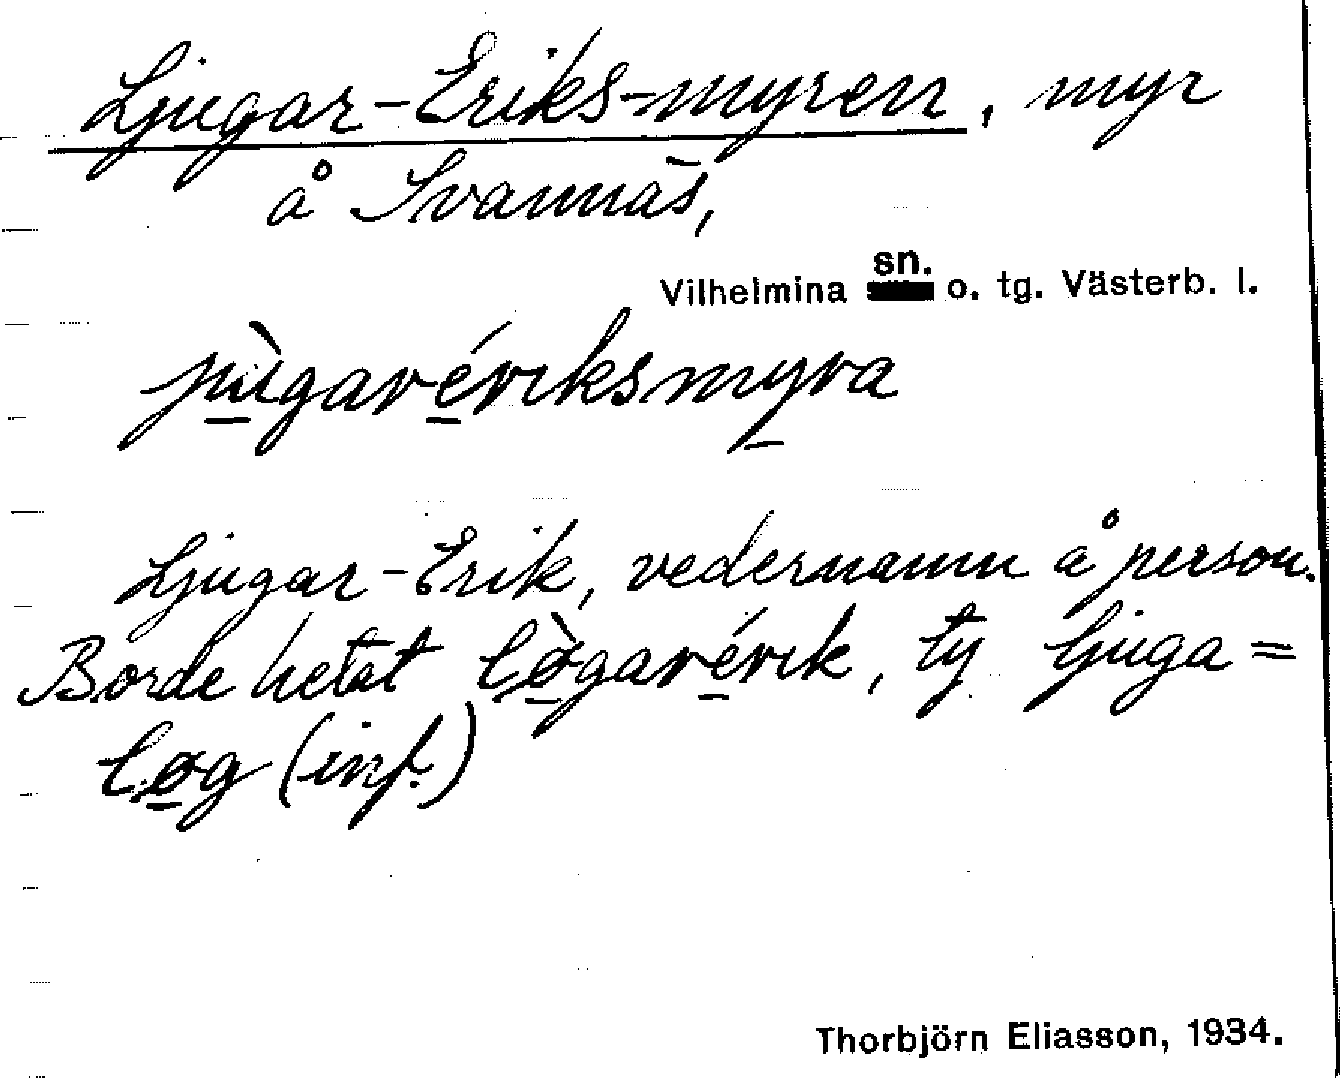 Ljugar-Eriks-myren, myr
å Svannäs,
Vilhelmina sn. o. tg. Västerb. l.
jùgarériksmyra
Ljugar-Erik, vedernamn å person.
Borde hetat lø̀garérık, ty ljuga =
løg (inf.)
Thorbjörn Eliasson, 1934.